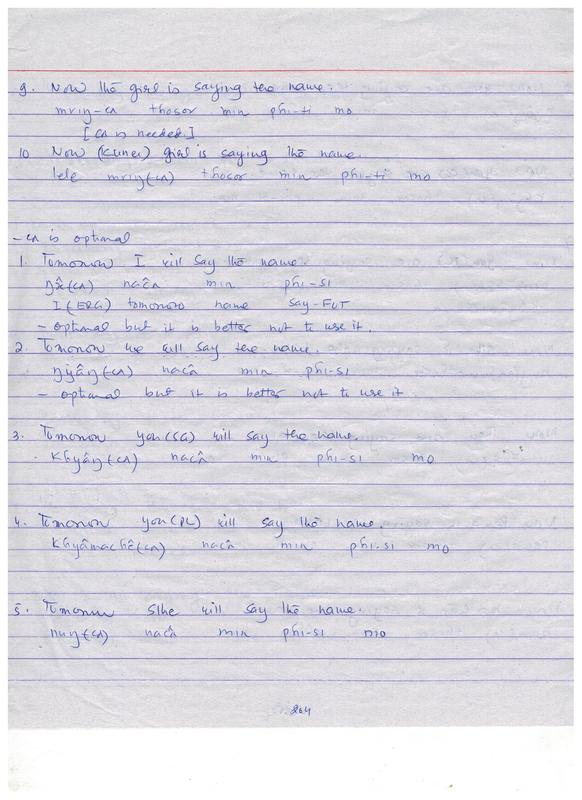 9. Now the girl is saying the name.
mrıŋ-ca thosor min phi-ti mo
[ca is needed.]
10 Now (Kunei) girl is saying the name.
lele mrıŋ(ca) thosor min phi-ti mo
-ca is optional
1. Tomorrow I will say the name.
ŋâ(ca) nacâ min phi-si
I(ERG) tomorrow name say-FUT
- optional but it is better not to use it.
2. Tomorrow we will say the name.
ŋyâŋ(ca) nacâ min phi-si
- optional but it is better not to use it
3. Tomorrow you(SG) will say the name.
Khyâŋ(ca) nacâ min phi-si mo
4. Tomorrow you(PL) will say the name.
Khyâmachê(ca) nacâ min phi-si mo
5. Tomorrow s/he will say the name.
nuŋ(ca) nacâ min phi-si mo
264